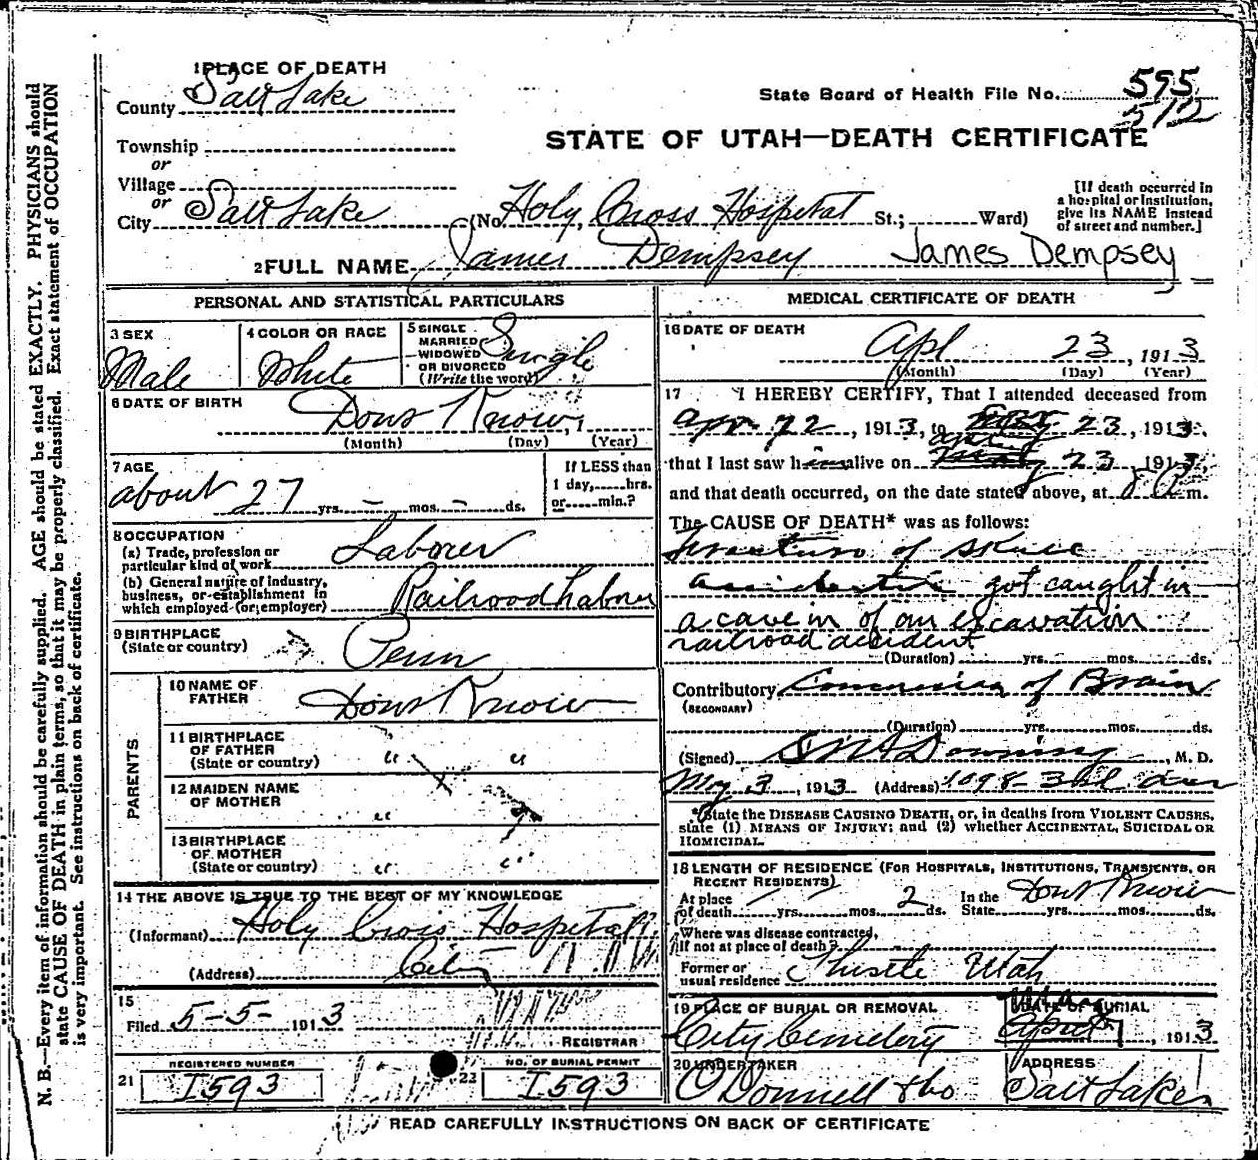 1 PLACE OF DEATH
County Salt Lake
State Board of Health File No. 595
512
STATE OF UTAH—DEATH CERTIFICATE
Township
or
Village
or
City Salt Lake (No. Holy Cross Hospital St.; Ward)
[If death occurred in a hospital or institution, give its NAME instead of street and number.]
2 FULL NAME James Dempsey James Dempsey
PERSONAL AND STATISTICAL PARTICULARS
3 SEX Male
4 COLOR OR RACE White
5 SINGLE MARRIED WIDOWED OR DIVORCED (Write the word) Single
6 DATE OF BIRTH Dont Know
(Month) (Day) (Year)
7 AGE about 27 yrs. - mos. - ds.
If LESS than 1 day, hrs. or min.?
8 OCCUPATION
(a) Trade, profession or particular kind of work Laborer
(b) General nature of industry, business, or establishment in which employed (or employer) Railroad Labor
9 BIRTHPLACE (State or country) Penn
PARENTS
10 NAME OF FATHER Dont Know
11 BIRTHPLACE OF FATHER (State or country) " "
12 MAIDEN NAME OF MOTHER "
13 BIRTHPLACE OF MOTHER (State or country) " "
14 THE ABOVE IS TRUE TO THE BEST OF MY KNOWLEDGE
(Informant) Holy Cross Hospital
(Address) City
15
Filed 5-5- 1913
REGISTRAR
21 REGISTERED NUMBER 1593
22 NO. OF BURIAL PERMIT 1593
MEDICAL CERTIFICATE OF DEATH
16 DATE OF DEATH
Apl 23, 1913
(Month) (Day) (Year)
17 I HEREBY CERTIFY, That I attended deceased from
Apr 22, 1913, to 23, 1913,
that I last saw him alive on 23, 1913,
and that death occurred, on the date stated above, at 8 m.
The CAUSE OF DEATH* was as follows:
Fracture of Skull
accidental got caught in
a cave in of an excavation
railroad accident
(Duration) yrs. mos. ds.
Contributory (SECONDARY) Concussion of Brain
(Duration) yrs. mos. ds.
(Signed) Downing, M. D.
May 3, 1913 (Address)
*State the DISEASE CAUSING DEATH, or, in deaths from VIOLENT CAUSES, state (1) MEANS OF INJURY; and (2) whether ACCIDENTAL, SUICIDAL OR HOMICIDAL.
18 LENGTH OF RESIDENCE (FOR HOSPITALS, INSTITUTIONS, TRANSIENTS, OR RECENT RESIDENTS)
At place of death yrs. mos. 2 ds. In the State yrs. mos. ds. Dont Know
Where was disease contracted, If not at place of death?
Former or usual residence Thistle Utah
19 PLACE OF BURIAL OR REMOVAL City Cemetery
DATE OF BURIAL , 1913
20 UNDERTAKER O'Donnell & Co
ADDRESS Salt Lake
READ CAREFULLY INSTRUCTIONS ON BACK OF CERTIFICATE
N. B.—Every item of information should be carefully supplied. AGE should be stated EXACTLY. PHYSICIANS should
state CAUSE OF DEATH in plain terms, so that it may be properly classified. Exact statement of OCCUPATION
is very important. See instructions on back of certificate.